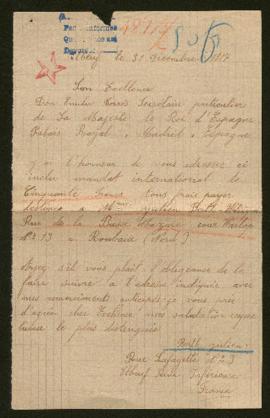 Elbeuf le 31 Decembre 1917
Son Excellence
Don Emilio Torres Secretaire particulier
de Sa Majesté le Roi d'Espagne
Palais Royal, Madrid, Espagne
J'ai l'honneur de vous adresser ci
inclu mandat international de
Cinquante francs pour
Mme Julien
Rue de la Basse Mazure cour
No 13 à Roubaix (Nord)
Ayez s'il vous plait l'obligeance de la
faire suivre à l'adresse indiquée avec
mes remerciments anticipés je vous prie
d'agréer cher Excellence mes salutations
les plus distinguées
Julien
Rue Lafayette No 23
Elbeuf Seine Inférieure
France